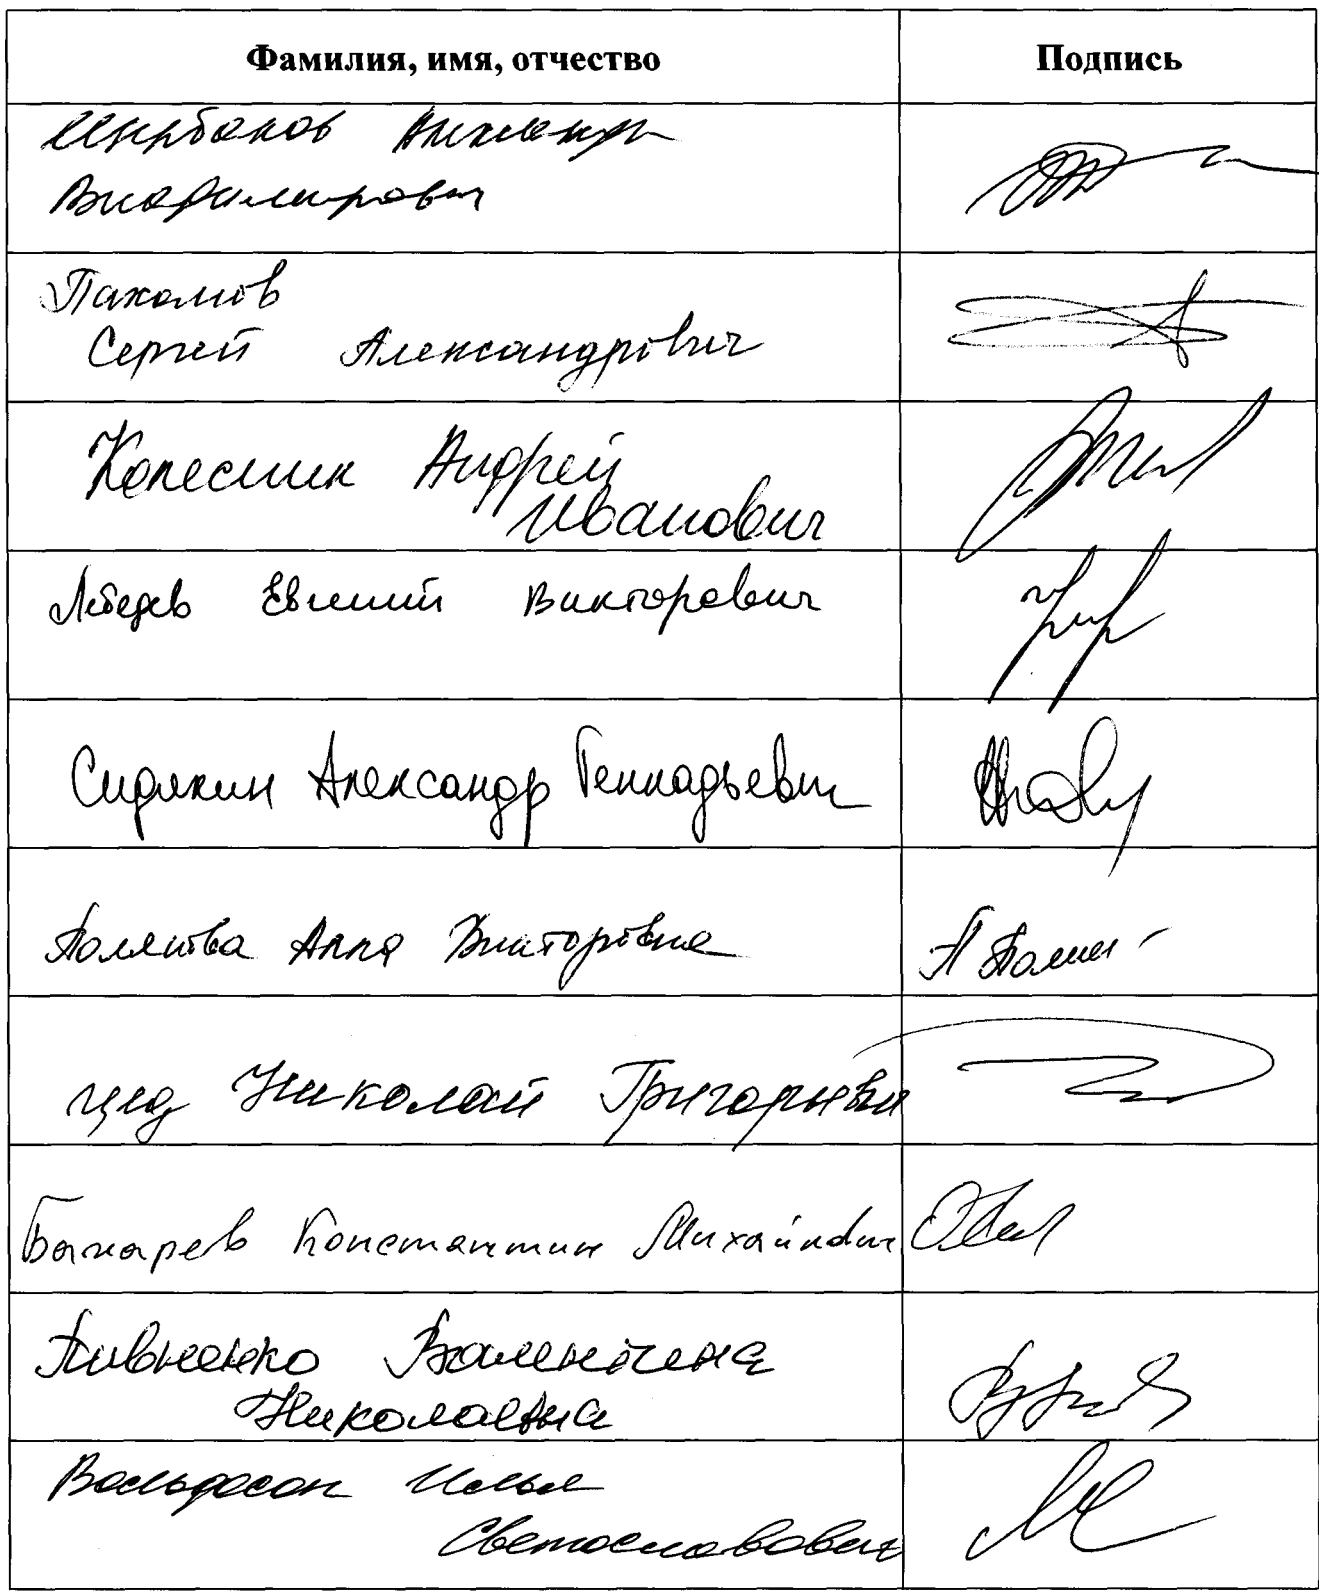 Фамилия, имя, отчество Подпись
Щербаков Александр
Владимирович
Пахомов
Сергей Александрович
Колесник Андрей
Иванович
Лебедев Евгений Викторович
Сидякин Александр Геннадьевич
Полякова Алла Викторовна
Цед Николай Григорьевич
Бахарев Константин Михайлович
Пивненко Валентина
Николаевна
Вольфсон Илья
Светославович